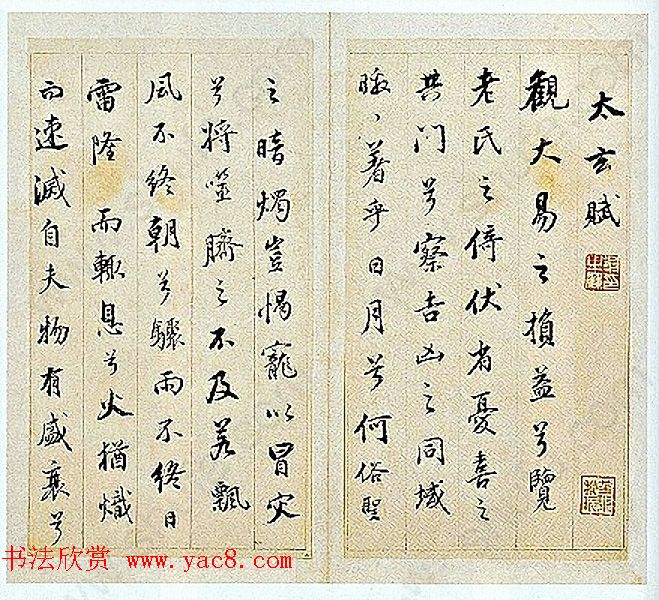 太玄賦
觀大易之損益兮覽
老氏之倚伏省憂喜之
共门兮察吉凶之同域
皦〻著乎日月兮何俗聖
之暗燭豈愒寵以冒灾
兮將噬臍之不及若飄
風不终朝兮驟雨不终日
雷隆〻而輒息兮火猶熾
而速滅自夫物有盛衰兮
书法欣赏 www.yac8.com